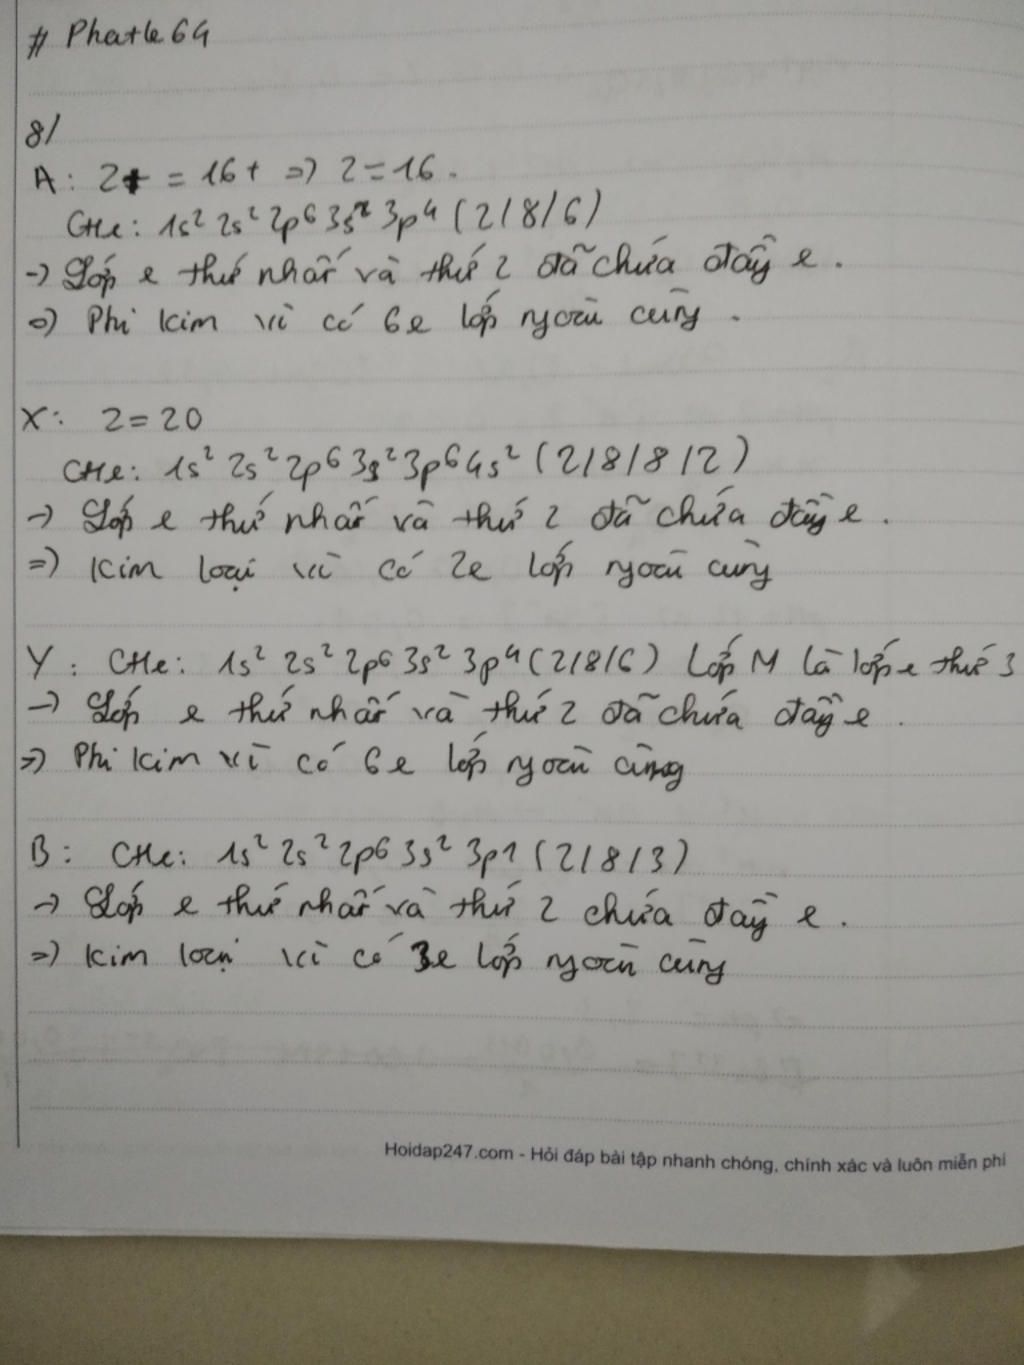 # Phatle64
8/
A: Z+ = 16+ => Z = 16.
CHe: 1s² 2s² 2p⁶ 3s² 3p⁴ (2/8/6)
-> Lớp e thứ nhất và thứ 2 đã chứa đầy e.
=> Phi kim vì có 6e lớp ngoài cùng.
X: Z = 20
CHe: 1s² 2s² 2p⁶ 3s² 3p⁶ 4s² (2/8/8/2)
-> Lớp e thứ nhất và thứ 2 đã chứa đầy e.
=> Kim loại vì có 2e lớp ngoài cùng
Y: CHe: 1s² 2s² 2p⁶ 3s² 3p⁴ (2/8/6) Lớp M là lớp e thứ 3
-> Lớp e thứ nhất và thứ 2 đã chứa đầy e.
=> Phi kim vì có 6e lớp ngoài cùng
B: CHe: 1s² 2s² 2p⁶ 3s² 3p1 (2/8/3)
-> Lớp e thứ nhất và thứ 2 chứa đầy e.
=> Kim loại vì có 3e lớp ngoài cùng
Hoidap247.com - Hỏi đáp bài tập nhanh chóng, chính xác và luôn miễn phí